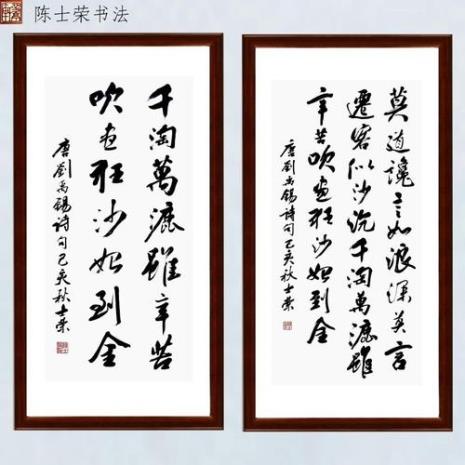 陈士荣书法
千淘萬漉雖辛苦
吹盡狂沙始到金
唐劉禹錫詩句己亥秋士荣
莫道讒言如浪深莫言
遷客似沙沉千淘萬漉雖
辛苦吹盡狂沙始到金
唐劉禹錫詩句己亥秋士荣